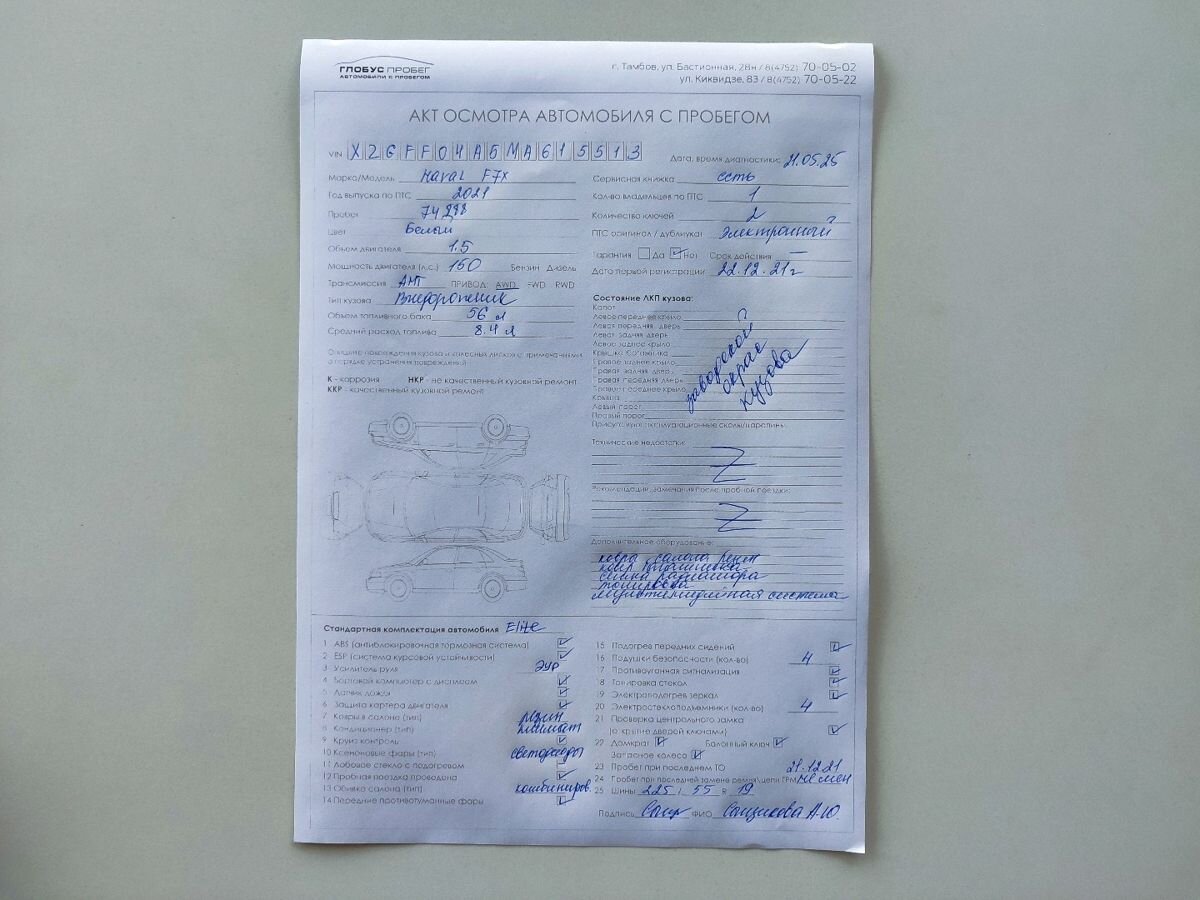 ГЛОБУС ПРОБЕГ
АВТОМОБИЛИ С ПРОБЕГОМ
г. Тамбов, ул. Бастионная, 28н / 8(4752) 70-05-02
ул. Киквидзе, 83 / 8(4752) 70-05-22
АКТ ОСМОТРА АВТОМОБИЛЯ С ПРОБЕГОМ
VIN X2GFF04A5MA615513
Дата, время диагностики: 21.05.25
Марка/Модель Haval F7X
Год выпуска по ПТС 2021
Пробег
Цвет Белый
Объем двигателя 1.5
Мощность двигателя (л.с.) 150 Бензин Дизель
Трансмиссия АМТ ПРИВОД: AWD FWD RWD
Тип кузова Внедорожник
Объем топливного бака 56 л
Средний расход топлива 8.4 л
Сервисная книжка есть
Кол-во владельцев по ПТС 1
Количество ключей 2
ПТС оригинал / дубликат Электронный
Гарантия Да Нет Срок действия —
Дата первой регистрации 22.12.21г
Внешние повреждения кузова и колесных дисков с примечаниями
о порядке устранения повреждений
К - коррозия НКР - не качественный кузовной ремонт
ККР - качественный кузовной ремонт
Состояние ЛКП кузова:
Капот
Левое переднее крыло
Левая передняя дверь
Левая задняя дверь
Левое заднее крыло
Крышка багажника
Правое заднее крыло
Правая задняя дверь
Правая передняя дверь
Правое переднее крыло
Крыша
Левый порог
Правый порог
заводской
окрас
кузова
Присутствуют эксплуатационные сколы/царапины
Технические недостатки:
Z
Рекомендации, замечания после пробной поездки:
Z
Дополнительное оборудование:
ковры салона резин
ковр багажника
сетка радиатора
тонировка
мультимедийная система
Стандартная комплектация автомобиля Elite
1 ABS (антиблокировочная тормозная система)
2 ESP (система курсовой устойчивости)
3 Усилитель руля ЭУР
4 Бортовой компьютер с дисплеем
5 Датчик дождя
6 Защита картера двигателя
7 Ковры в салоне (тип) резин
8 Кондиционер (тип) климат
9 Круиз контроль
10 Ксеноновые фары (тип) светодиоды
11 Лобовое стекло с подогревом
12 Пробная поездка проведена
13 Обивка салона (тип) комбиниров.
14 Передние противотуманные фары
15 Подогрев передних сидений
16 Подушки безопасности (кол-во) 4
17 Противоугонная сигнализация
18 Тонировка стекол
19 Электроподогрев зеркал
20 Электростеклоподъемники (кол-во) 4
21 Проверка центрального замка
(открытие дверей ключами)
22 Домкрат Балонный ключ
Запасное колесо
23 Пробег при последнем ТО 21.12.21
24 Пробег при последней замене ремня/цепи ГРМ не мен
25 Шины 225 / 55 R 19
Подпись ФИО